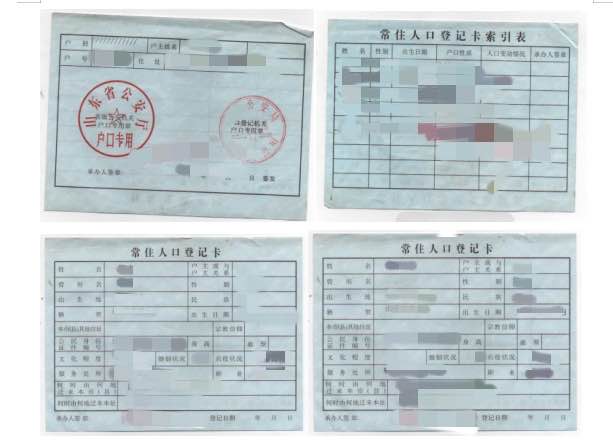 户 别
户主姓名
户 号
住 址
山东省公安厅
户口专用
户口专用章
户口登记机关
户口专用章
承办人签章:
日 签发
常住人口登记卡索引表
姓 名 性别 出生日期 户口性质 人口变动情况 承办人签章
常住人口登记卡
姓 名
户主或与
户主关系
曾用名
性 别
出生地
民 族
籍 贯
出生日期
本市(县)其他住址
宗教信仰
公民身份
证件编号
身高
血型
文化程度
婚姻状况
兵役状况
服务处所
职业
何时由何地
迁来本市(县)
何时由何地迁来本址
承办人签章
登记日期 年 月 日
常住人口登记卡
姓 名
户主或与
户主关系
曾用名
性 别
出生地
民 族
籍 贯
出生日期
本市(县)其他住址
宗教信仰
公民身份
证件编号
身高
血型
文化程度
婚姻状况
兵役状况
服务处所
职业
何时由何地
迁来本市(县)
何时由何地迁来本址
承办人签章
登记日期 年 月 日